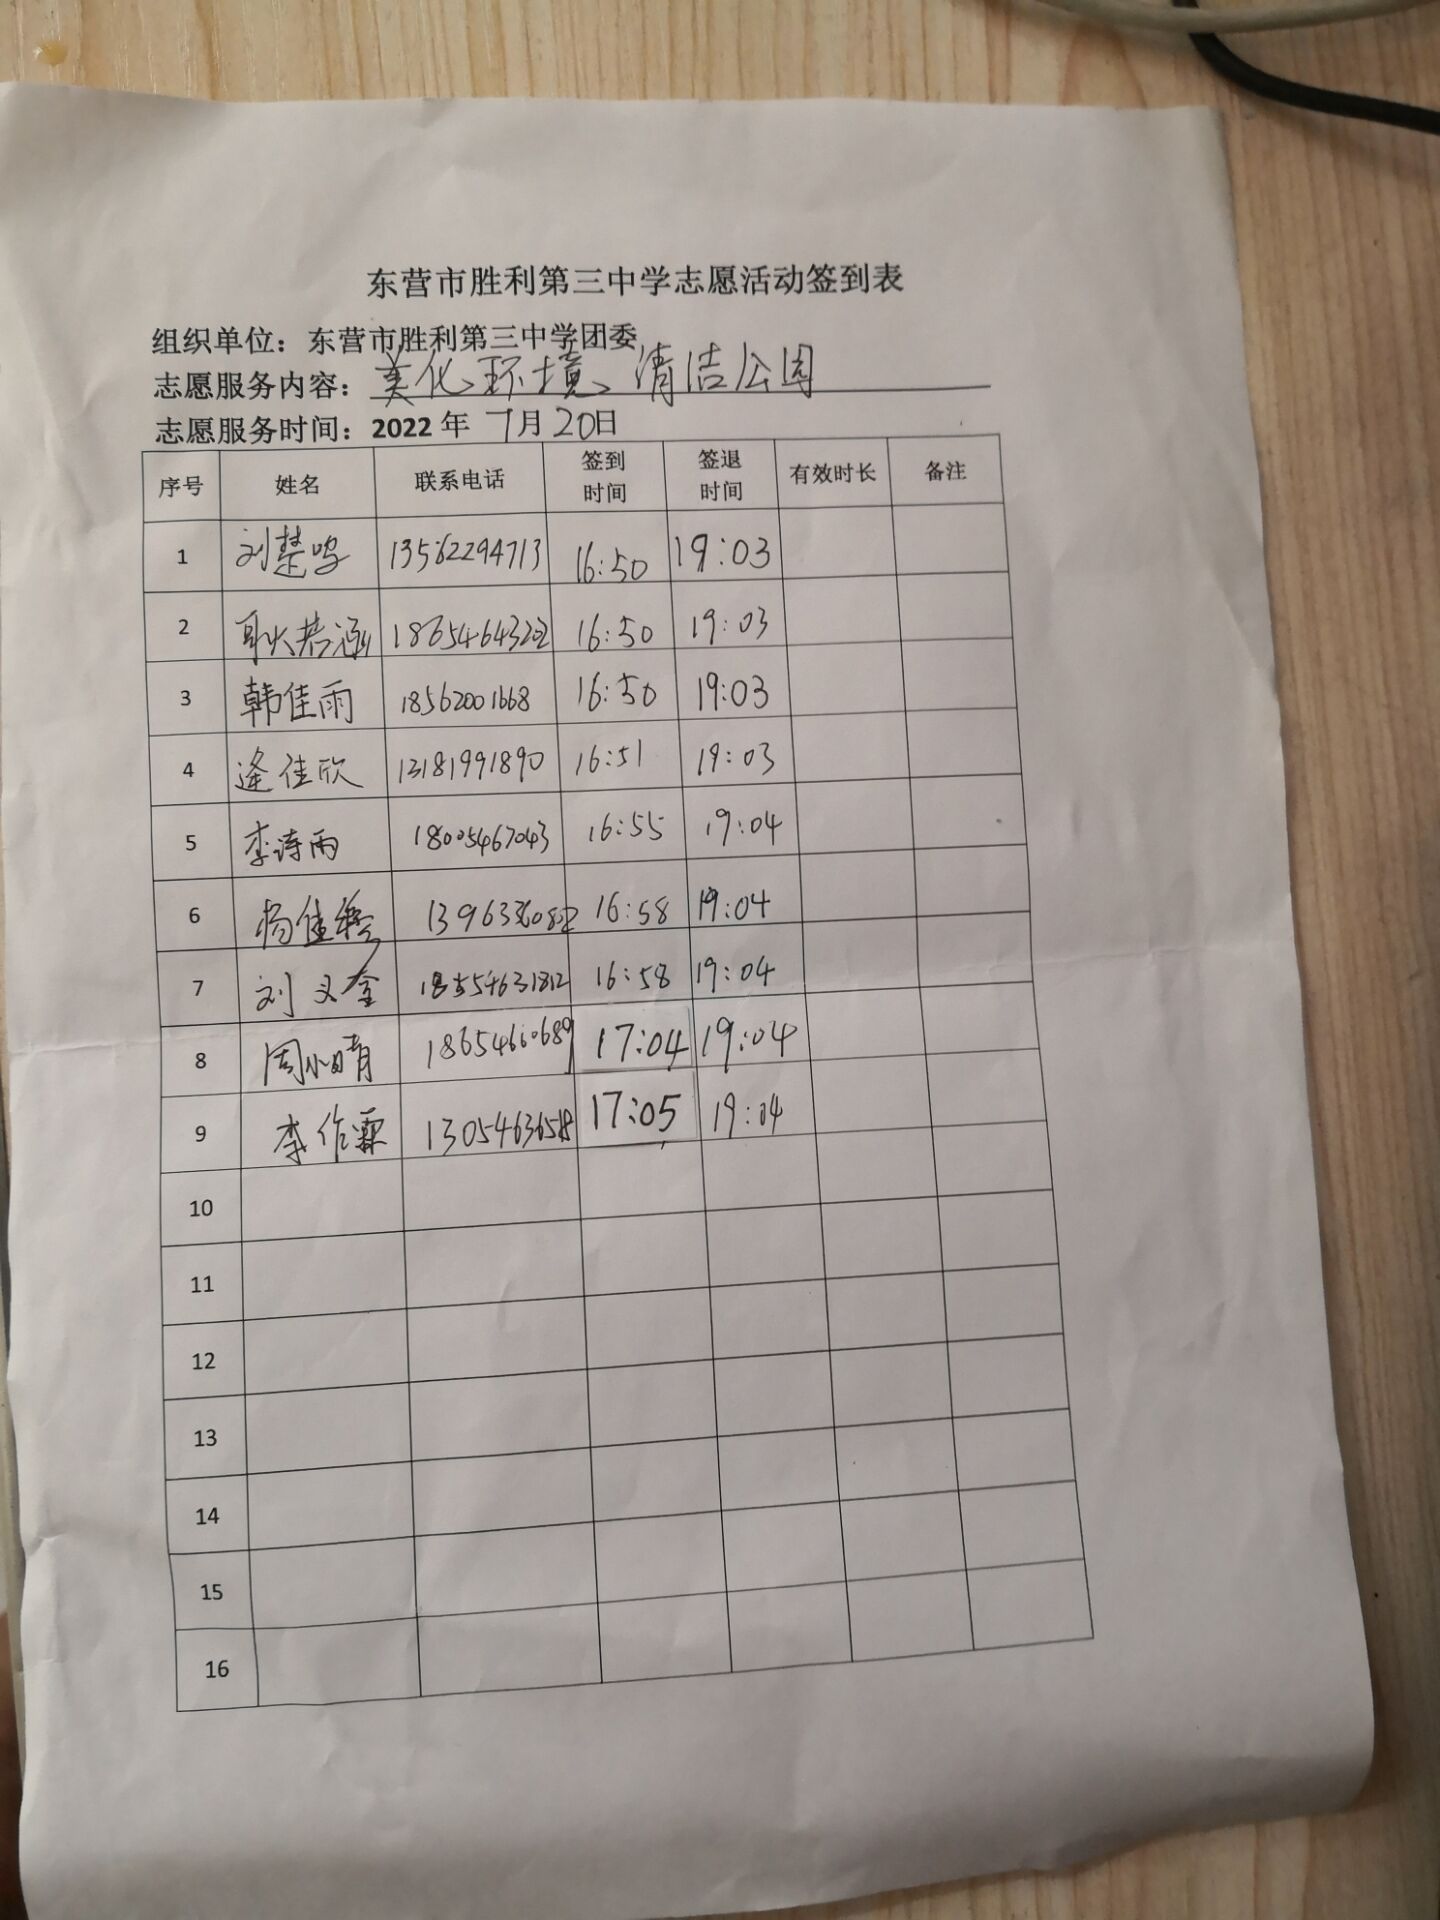 东营市胜利第三中学志愿活动签到表
组织单位：东营市胜利第三中学团委
志愿服务内容：美化环境、清洁公园
志愿服务时间：2022年 7月20日
序号 姓名 联系电话 签到时间 签退时间 有效时长 备注
1 刘楚鸣 13562294713 16:50 19:03
2 耿若涵 16:50 19:03
3 韩佳雨 18562001668 16:50 19:03
4 逄佳欣 13181991890 16:51 19:03
5 李诗雨 18005467043 16:55 19:04
6 杨佳绘 16:58 19:04
7 刘文金 18554631812 16:58 19:04
8 周小晴 18654660689 17:04 19:04
9 李作霖 17:05 19:04
10
11
12
13
14
15
16